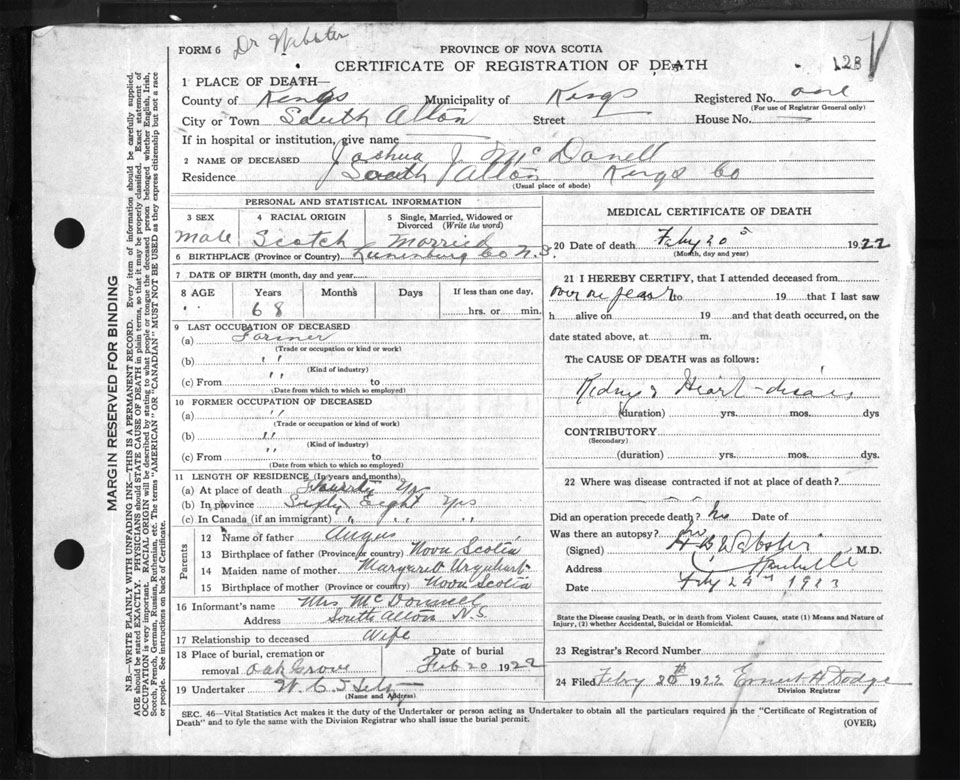 FORM 6 Dr Webster
PROVINCE OF NOVA SCOTIA
CERTIFICATE OF REGISTRATION OF DEATH
123
1 PLACE OF DEATH—
County of Kings Municipality of Kings Registered No. one
(For use of Registrar General only)
City or Town South Alton Street House No.
If in hospital or institution, give name
2 NAME OF DECEASED Joshua J. McDonell
Residence South Alton Kings Co
(Usual place of abode)
PERSONAL AND STATISTICAL INFORMATION
3 SEX 4 RACIAL ORIGIN 5 Single, Married, Widowed or Divorced (Write the word)
Male Scotch Married
6 BIRTHPLACE (Province or Country) Lunenburg Co N.S.
7 DATE OF BIRTH (month, day and year)
8 AGE Years Months Days If less than one day,
68 hrs. or min.
9 LAST OCCUPATION OF DECEASED
(a) Farmer
(Trade or occupation or kind or work)
(b) " "
(Kind of industry)
(c) From " to
(Date from which to which so employed)
10 FORMER OCCUPATION OF DECEASED
(a) "
(Trade or occupation or kind of work)
(b) "
(Kind of industry)
(c) From " to
(Date from which to which so employed)
11 LENGTH OF RESIDENCE (In years and months)
(a) At place of death
(b) In province Sixty Eight yrs
(c) In Canada (if an immigrant) " " "
Parents
12 Name of father Angus
13 Birthplace of father (Province or country) Nova Scotia
14 Maiden name of mother Margaret Urquhart
15 Birthplace of mother (Province or country) Nova Scotia
16 Informant's name Mrs McDonnell
Address South Alton N.S.
17 Relationship to deceased Wife
18 Place of burial, cremation or removal Oak Grove Date of burial Feb 20 1922
19 Undertaker
(Name and Address)
MEDICAL CERTIFICATE OF DEATH
20 Date of death Feby 20 1922
(Month, day and year)
21 I HEREBY CERTIFY, that I attended deceased from
to 19 that I last saw
h alive on 19 and that death occurred, on the
date stated above, at m.
The CAUSE OF DEATH was as follows:
Kidney & Heart disease
(duration) yrs. mos. dys
CONTRIBUTORY
(Secondary)
(duration) yrs. mos. dys.
22 Where was disease contracted if not at place of death?
Did an operation precede death? No Date of
Was there an autopsy? No
(Signed) H B Webster M.D.
Address
Date Feby 24th 1923
State the Disease causing Death, or in death from Violent Causes, state (1) Means and Nature of Injury, (2) whether Accidental, Suicidal or Homicidal.
23 Registrar's Record Number
24 Filed Feby 1922 Ernest H Dodge
Division Registrar
SEC. 46—Vital Statistics Act makes it the duty of the Undertaker or person acting as Undertaker to obtain all the particulars required in the "Certificate of Registration of
Death" and to fyle the same with the Division Registrar who shall issue the burial permit.
(OVER)
MARGIN RESERVED FOR BINDING
N.B.—WRITE PLAINLY WITH UNFADING INK—THIS IS A PERMANENT RECORD. Every item of information should be carefully supplied.
AGE should be stated EXACTLY. PHYSICIANS should STATE CAUSE OF DEATH in plain terms, so that it may be properly classified. Exact statement of
OCCUPATION is very important. RACIAL ORIGIN will be described by stating to what people or tongue the deceased person belonged whether English, Irish,
Scotch, French, German, Russian, Ruthenian, etc. The terms "AMERICAN" OR "CANADIAN" MUST NOT BE USED as they express citizenship but not a race
or people. See instructions on back of Certificate.